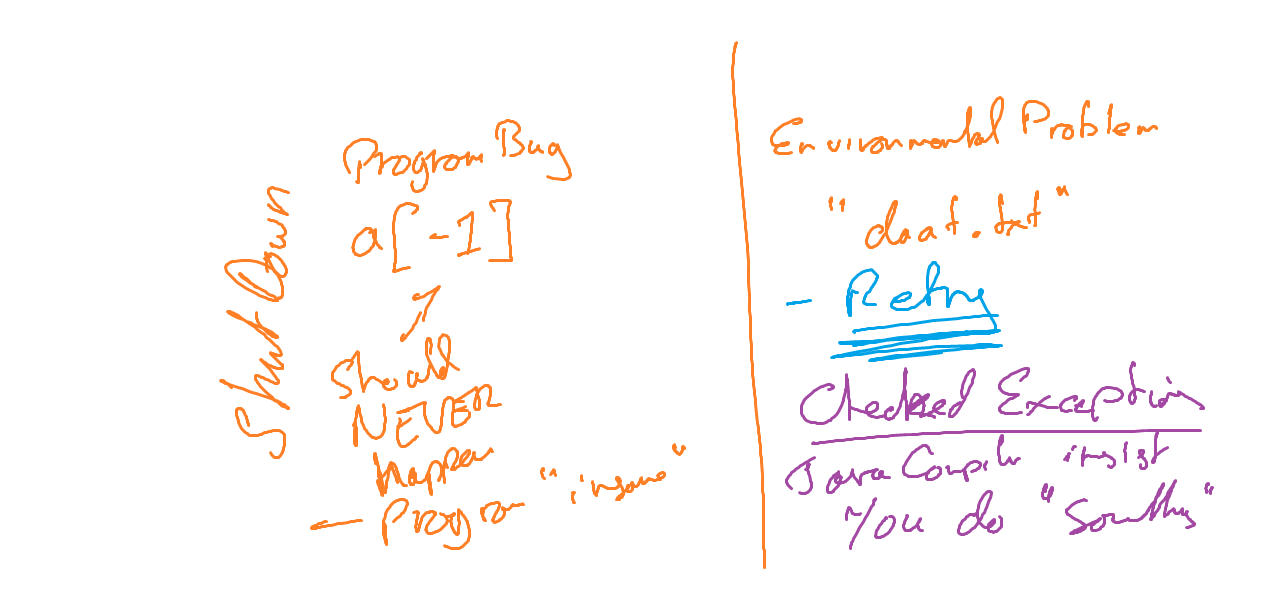 Program Bug
a[-1]
Should
NEVER
happen
- Program "insane"
Shut Down
Environmental Problem
"daat.txt"
- Retry
Checked Exception
Java Compiler insist
You do "Something"